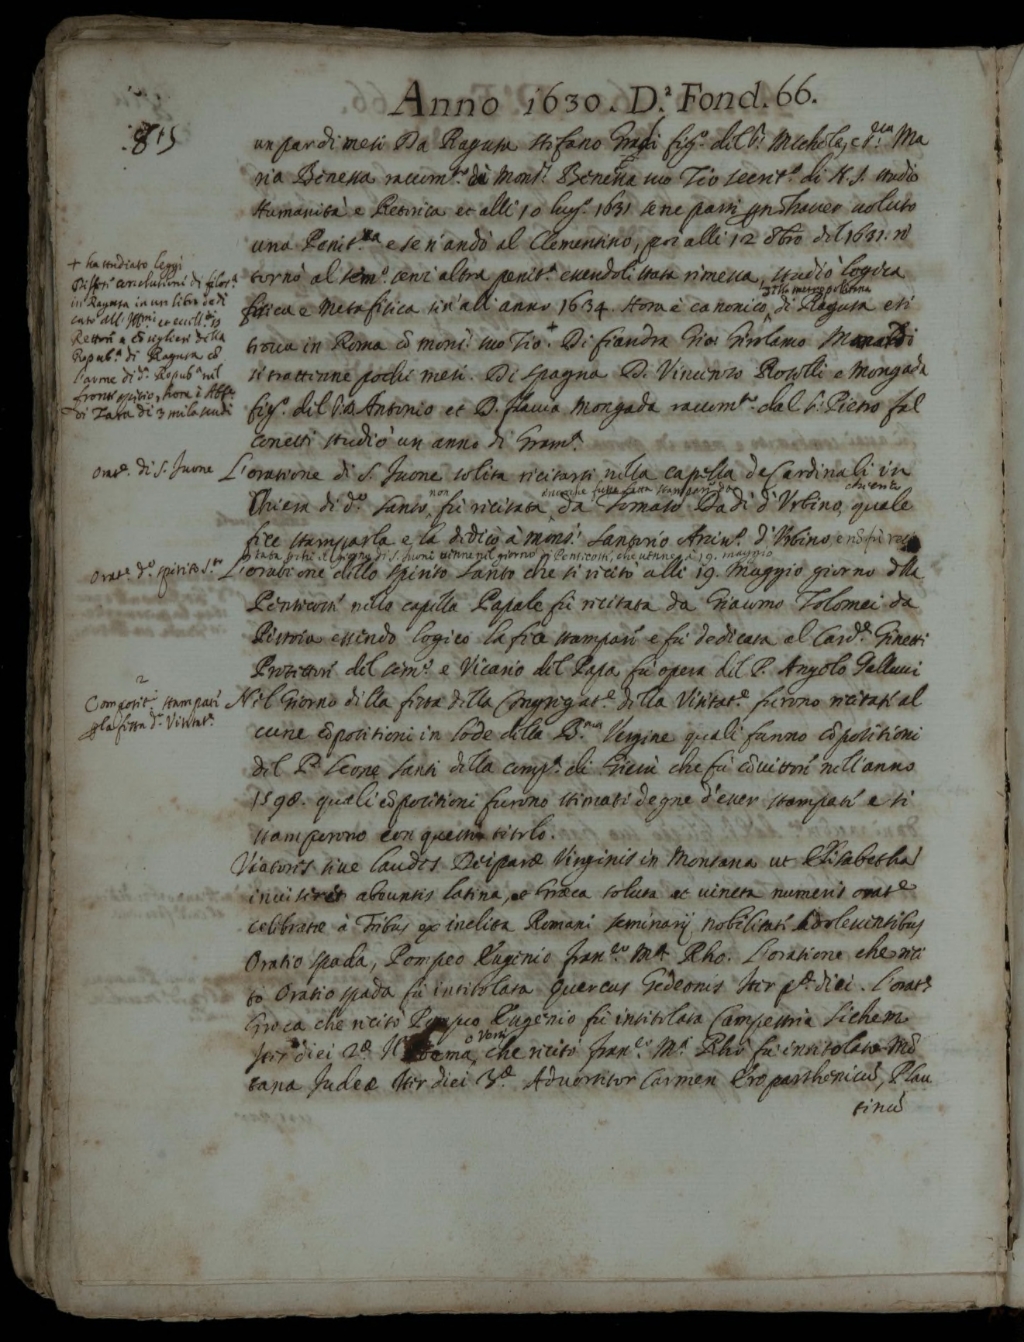 Anno 1630. D.ª Fond. 66.
815
un par di mesi Da Ragusa Stefano Gradi fig.º del Sr. Michele, et Sr.ª Ma
ria Benessa racom.to da Mons.r Benessa suo Tio secret.º di N. S. studiò
Humanità e Retorica et alli 10 lug.º 1631 se ne partì p non haver voluto
una Penit.za e se n'andò al Clementino, poi alli 12 8bre del 1631. ri
tornò al sem.º senz'altra penit.ª essendoli stata rimessa, studiò logica
fisica e Metafisica sin'all'anno 1634. Hora è canonico della metropolitana di Ragusa et si
trova in Roma cõ mons.r suo Tio + Di fiandra Gio: Girolamo
si trattenne pochi mesi. Di Spagna D. Vincenzo Roselli e Mongada
fig.º del Sr. D. Antonio et D. flavia Mongada racom.to dal Sr. Pietro fal
conetti studiò un anno di Gram.ca
+ ha studiato leggi
Difese conclusioni di filos.ª
in Ragusa in un libro dedi
cato all' Ill.mi et ecc.mi SS
Rettori e cõsiglieri della
Repub.ª di Ragusa cõ
l'arme di d.ª Repub.ª nel
frontispitio, hora è Abb.e
di Zara di 3 mila scudi
Orat.e di S. Ivone
L'oratione di S. Ivone solita recitarsi nella capella de Cardinali in
Chiesa di d.º Santo non fù recitata da Tomaso Dadi d'Urbino convito, quale
fece stamparla e la dedicò à mons.r Santorio Arciv.º d'Urbino e nõ fù reci
tata perche il giorno di S. Ivone venne nel giorno di Pentecoste, che venne à 19. maggio
Orat.e d.º spirito S.to
L'oratione dello Spirito Santo che si recitò alli 19. Maggio giorno dlla
Pentecoste nella capella Papale fù recitata da Giacomo Tolomei da
Pistoia essendo logico la fece stampare e fù dedicata al Card.le Ginetti
Protettore del sem.º e Vicario del Papa, fù opera del P. Angelo Gallucci
Composit.i stampate
p la festa d.ª Visitat.e
Nel Giorno della festa della Congregat.e della Visitat.e furono recitate al
cune cõpositioni in lode della B.ma Vergine quali furno cõpositioni
del P.e Leone Santi della comp.ª di Giesù che fù cõvittore nell'anno
1598. quali cõpositioni furono stimate degne d'esser stampate e si
stamporono con questo titolo.
Viatores sive laudes Deiparæ Virginis in Montana ut Elisabetha
inviseret abeuntis latina, et Græca soluta ac vincta numeris orat.e
celebratæ à Tribus ex inclita Romani seminarij nobilitate Adolescentibus
Oratio Spada, Pompeo Eugenio fran.co M.ª Rho. L'oratione che reci
tò Oratio Spada fù intitolata Quercus Gedeonis Iter p.æ diei. L'orat.e
Greca che recitò Pompeo Eugenio fù intitolata Campestria Sichem
Iter diei 2.æ Il Poema ò versi che recitò fran.co M.ª Rhò fù intitolato Mõ
tana Judeæ Iter diei 3.æ Carmen Plau
tinũ